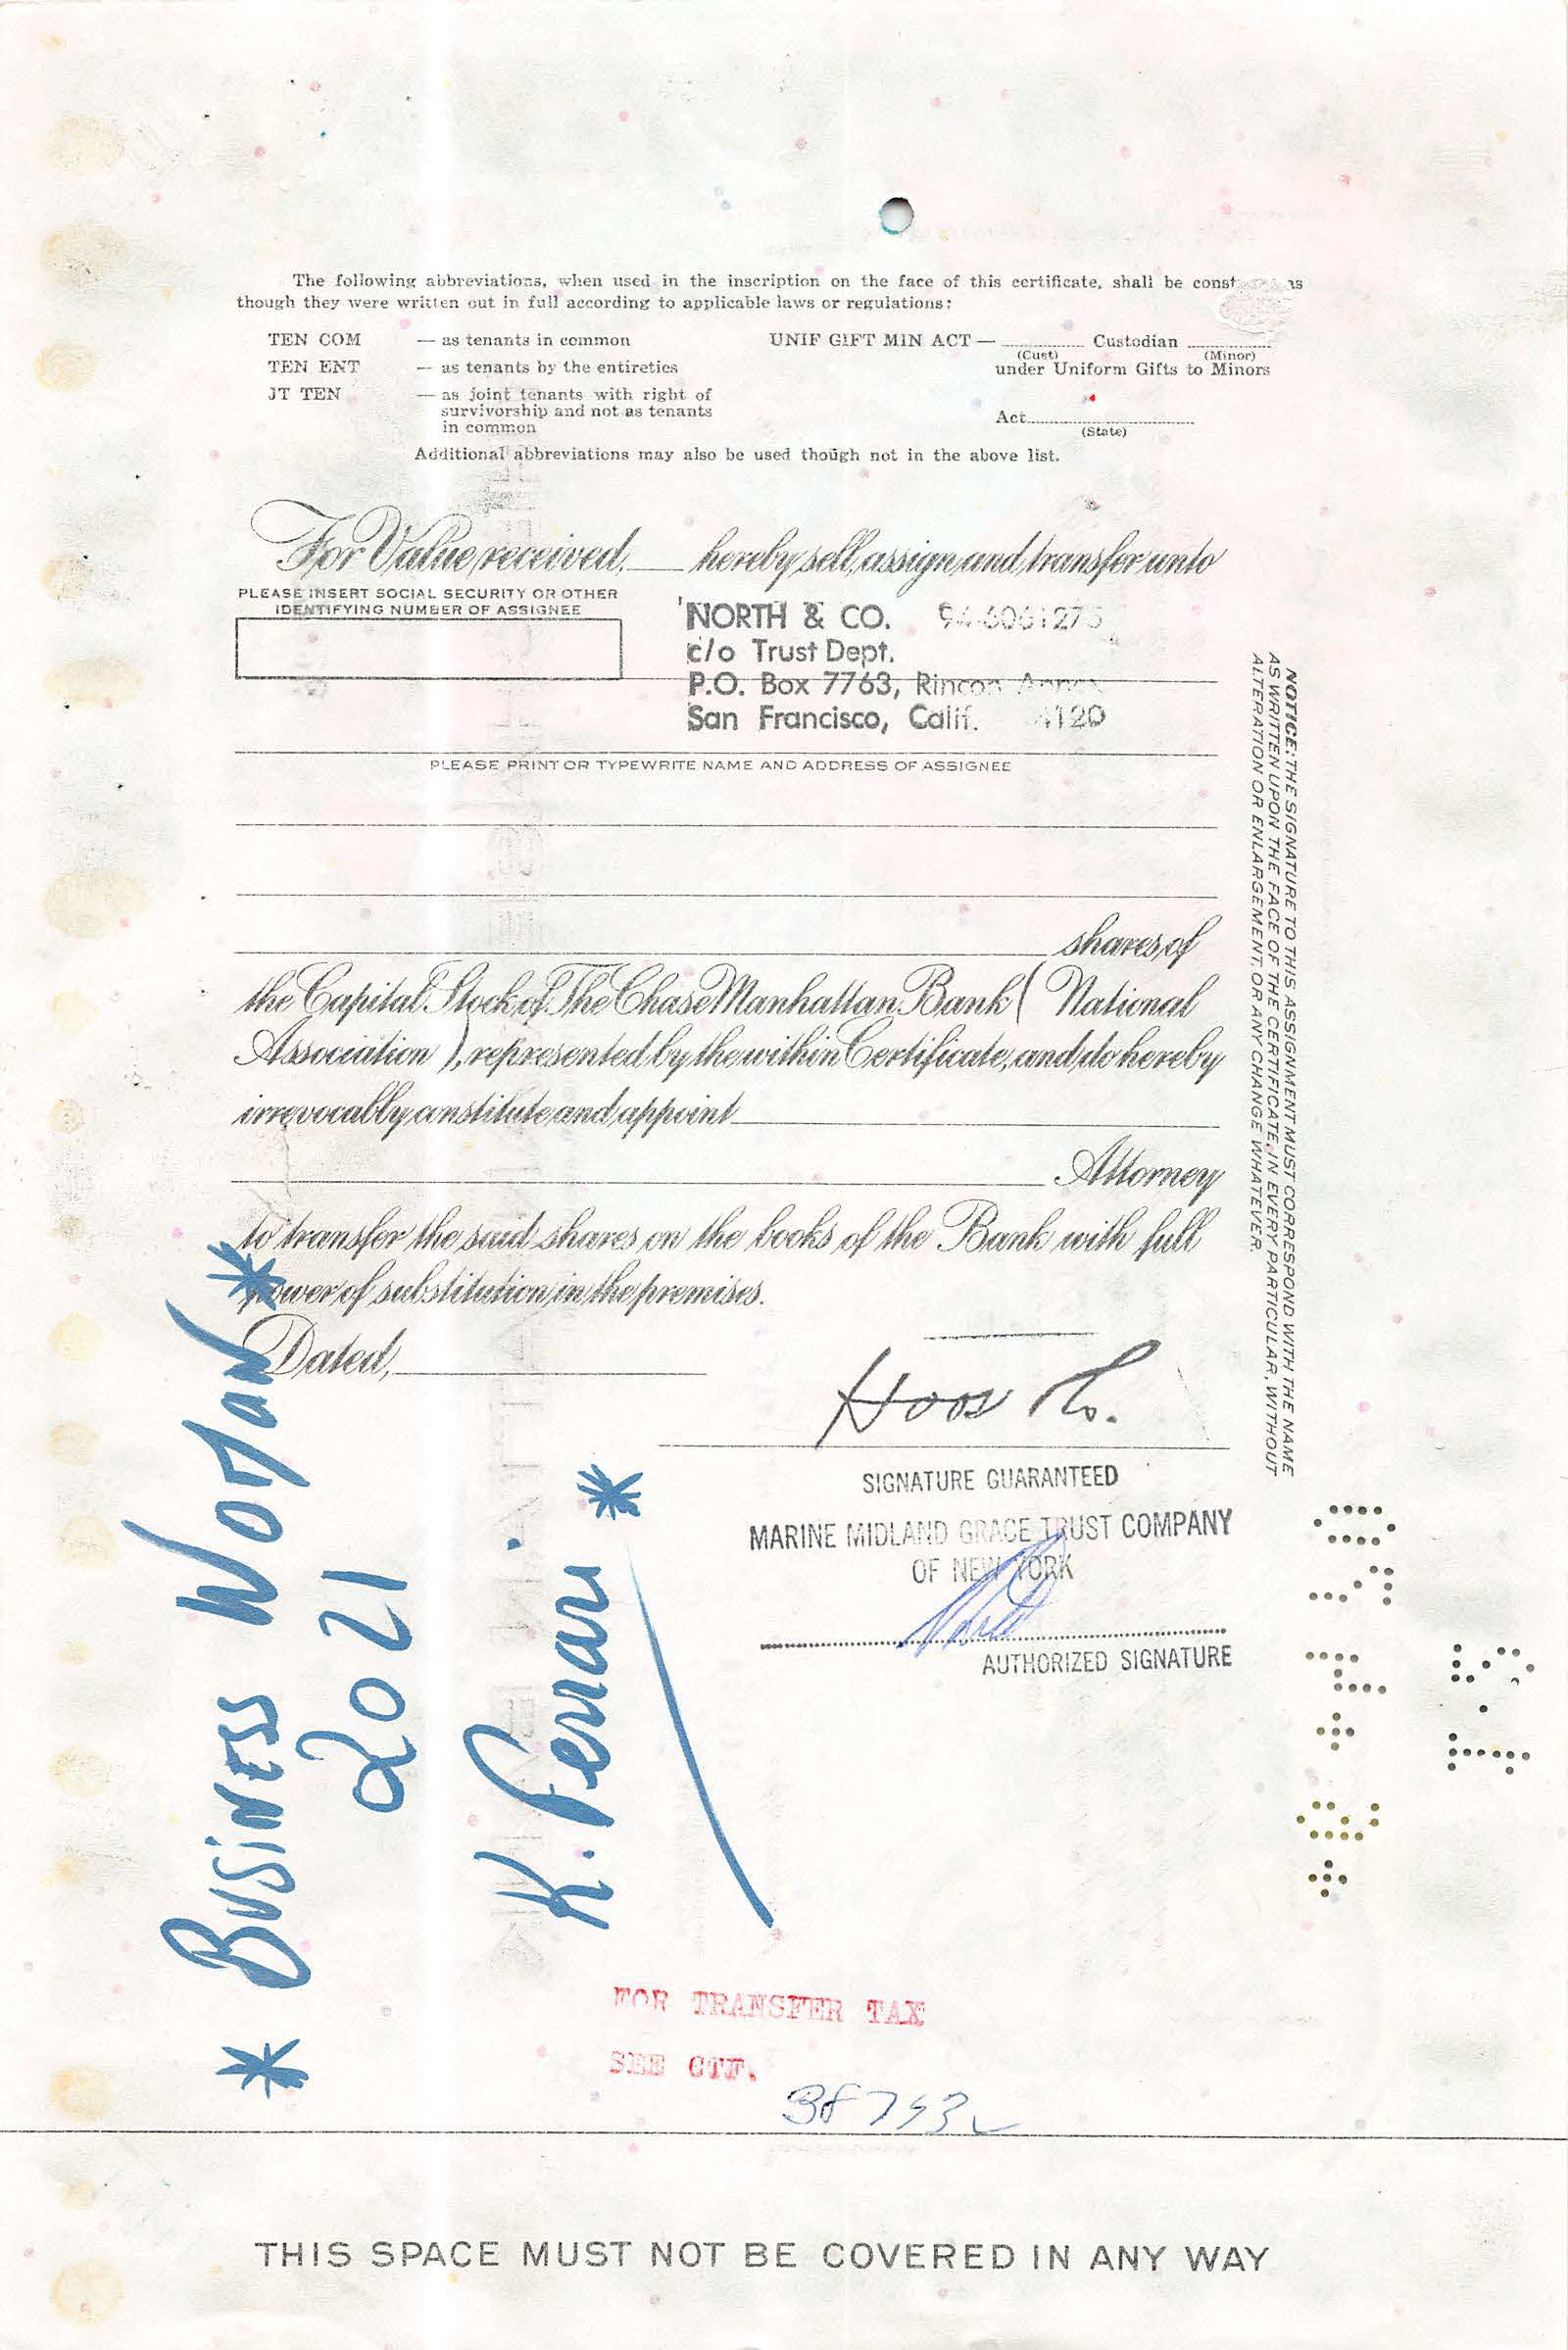 The following abbreviations, when used in the inscription on the face of this certificate, shall be as
though they were written out in full according to applicable laws or regulations:
TEN COM — as tenants in common
TEN ENT — as tenants by the entireties
JT TEN — as joint tenants with right of
survivorship and not as tenants
in common
UNIF GIFT MIN ACT — Custodian
(Cust) (Minor)
under Uniform Gifts to Minors
Act
(State)
Additional abbreviations may also be used though not in the above list.
For Value received, hereby sell, assign and transfer unto
PLEASE INSERT SOCIAL SECURITY OR OTHER
IDENTIFYING NUMBER OF ASSIGNEE
NORTH & CO. 94-6061275
c/o Trust Dept.
P.O. Box 7763, Rincon Annex
San Francisco, Calif. 94120
PLEASE PRINT OR TYPEWRITE NAME AND ADDRESS OF ASSIGNEE
shares of
the Capital Stock of The Chase Manhattan Bank (National
Association), represented by the within Certificate, and do hereby
irrevocably constitute and appoint
Attorney
to transfer the said shares on the books of the Bank with full
power of substitution in the premises.
Dated,
NOTICE: THE SIGNATURE TO THIS ASSIGNMENT MUST CORRESPOND WITH THE NAME
AS WRITTEN UPON THE FACE OF THE CERTIFICATE, IN EVERY PARTICULAR, WITHOUT
ALTERATION OR ENLARGEMENT, OR ANY CHANGE WHATEVER.
SIGNATURE GUARANTEED
MARINE MIDLAND GRACE TRUST COMPANY
OF NEW YORK
AUTHORIZED SIGNATURE
* BUSINESS WOMAN *
2021
K. Ferrari *
FOR TRANSFER TAX
SEE CTF.
THIS SPACE MUST NOT BE COVERED IN ANY WAY